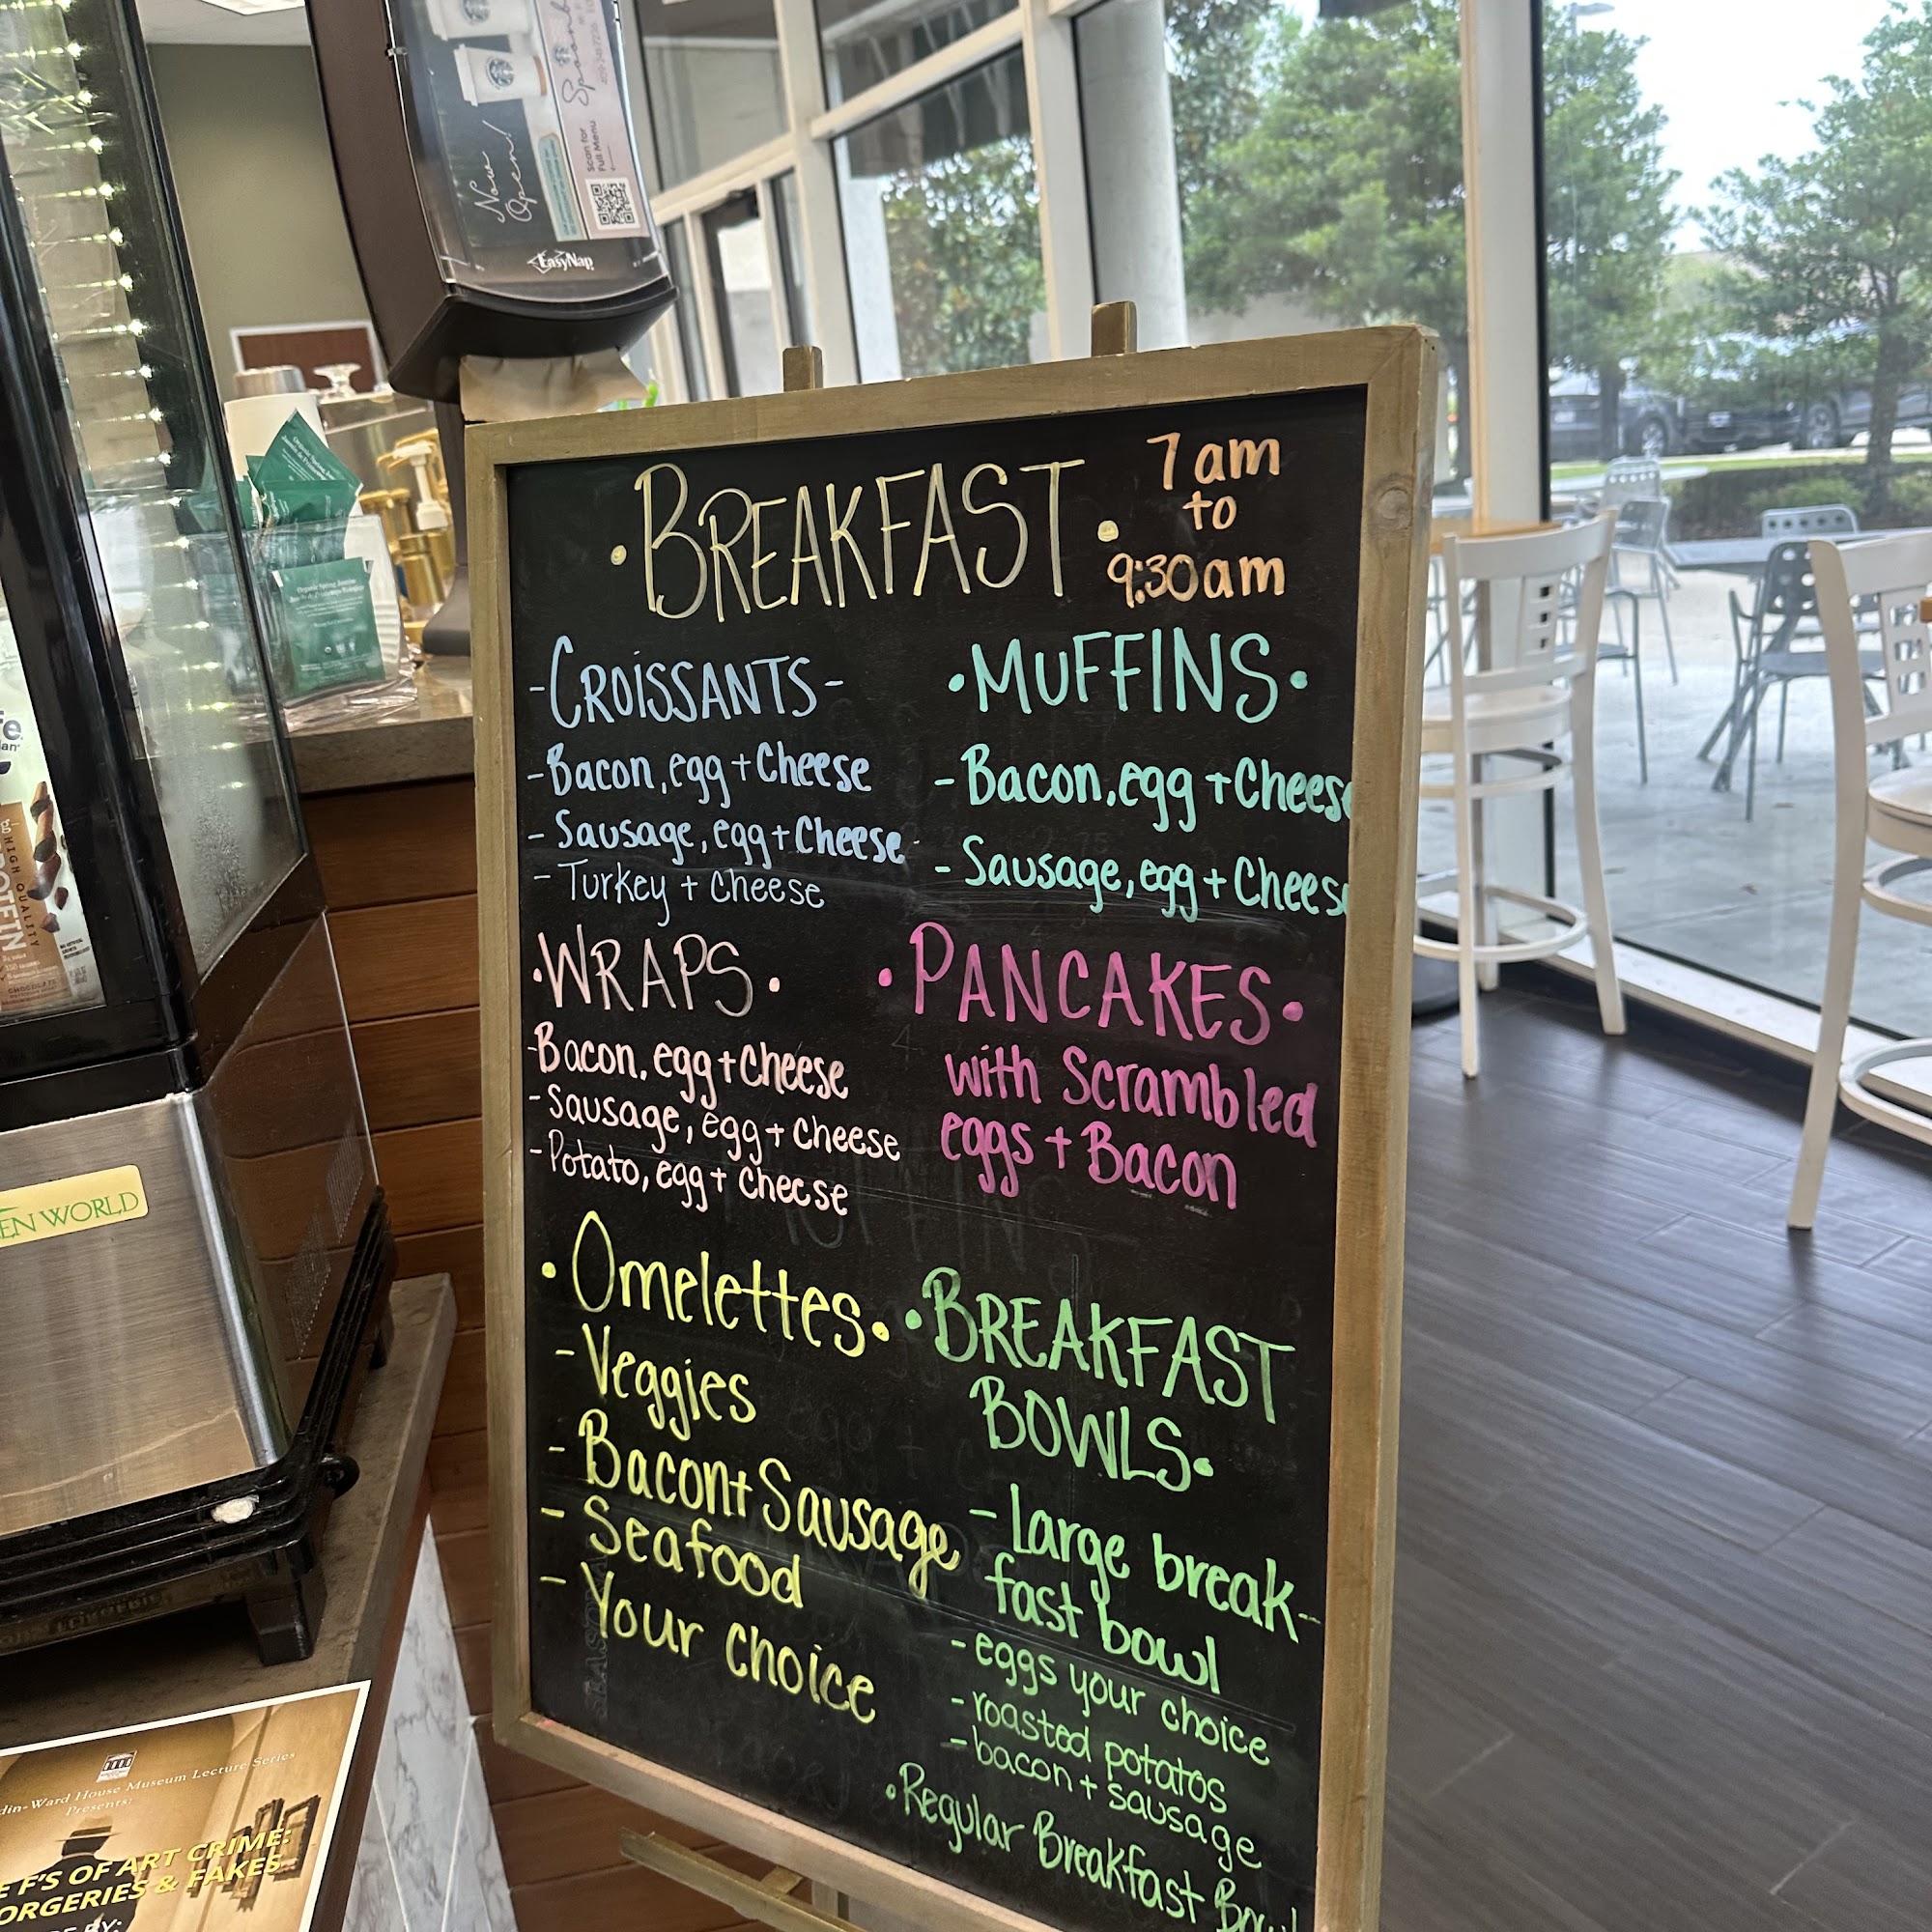 Now
Open!
Scan for
Full Menu
EasyNap
Organic Spring Jasmine
BREAKFAST
7am
to
9:30am
-CROISSANTS-
-Bacon, egg + Cheese
- Sausage, egg + Cheese
- Turkey + Cheese
•MUFFINS•
- Bacon, egg + Cheese
- Sausage, egg + Chees
•WRAPS•
-Bacon, egg + Cheese
-Sausage, egg + Cheese
-Potato, egg + Cheese
•PANCAKES•
with Scrambled
eggs + Bacon
•Omelettes•
- Veggies
- Bacon + Sausage
- Seafood
- Your choice
•BREAKFAST
BOWLS•
- Large break-
fast bowl
- eggs your choice
- roasted potatos
- bacon + sausage
•Regular Breakfast Bowl
HIGH QUALITY
CHOCOLATE
EN WORLD
din-Ward House Museum Lecture Series
Presents:
E F'S OF ART CRIME:
ORGERIES & FAKES
BY: